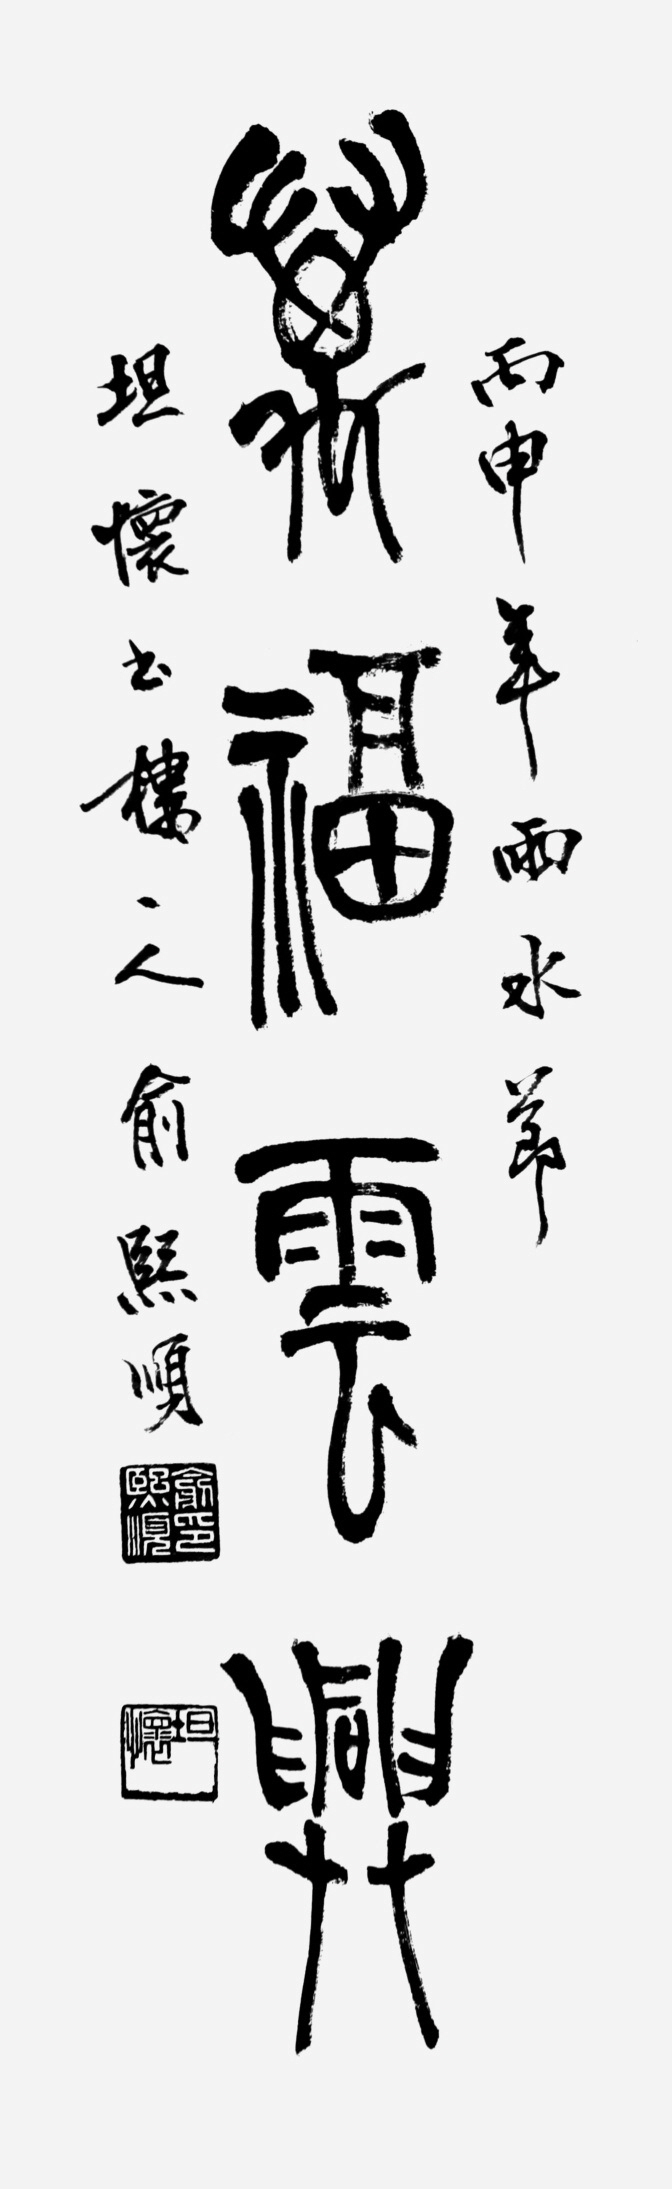 丙申年雨水節
萬福雲興
坦懷書樓主人俞熙順
俞印熙順
坦懷